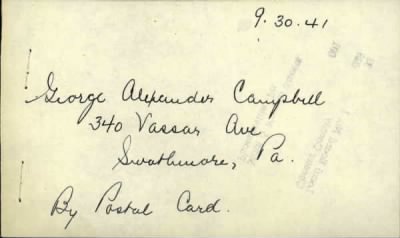 9.30.41
George Alexander Campbell
340 Vassar Ave
Swathmore, Pa.
By Postal Card.